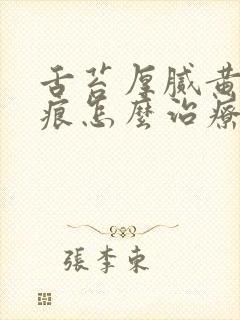 舌苔厚腻黄
痕怎麼治療
張李東